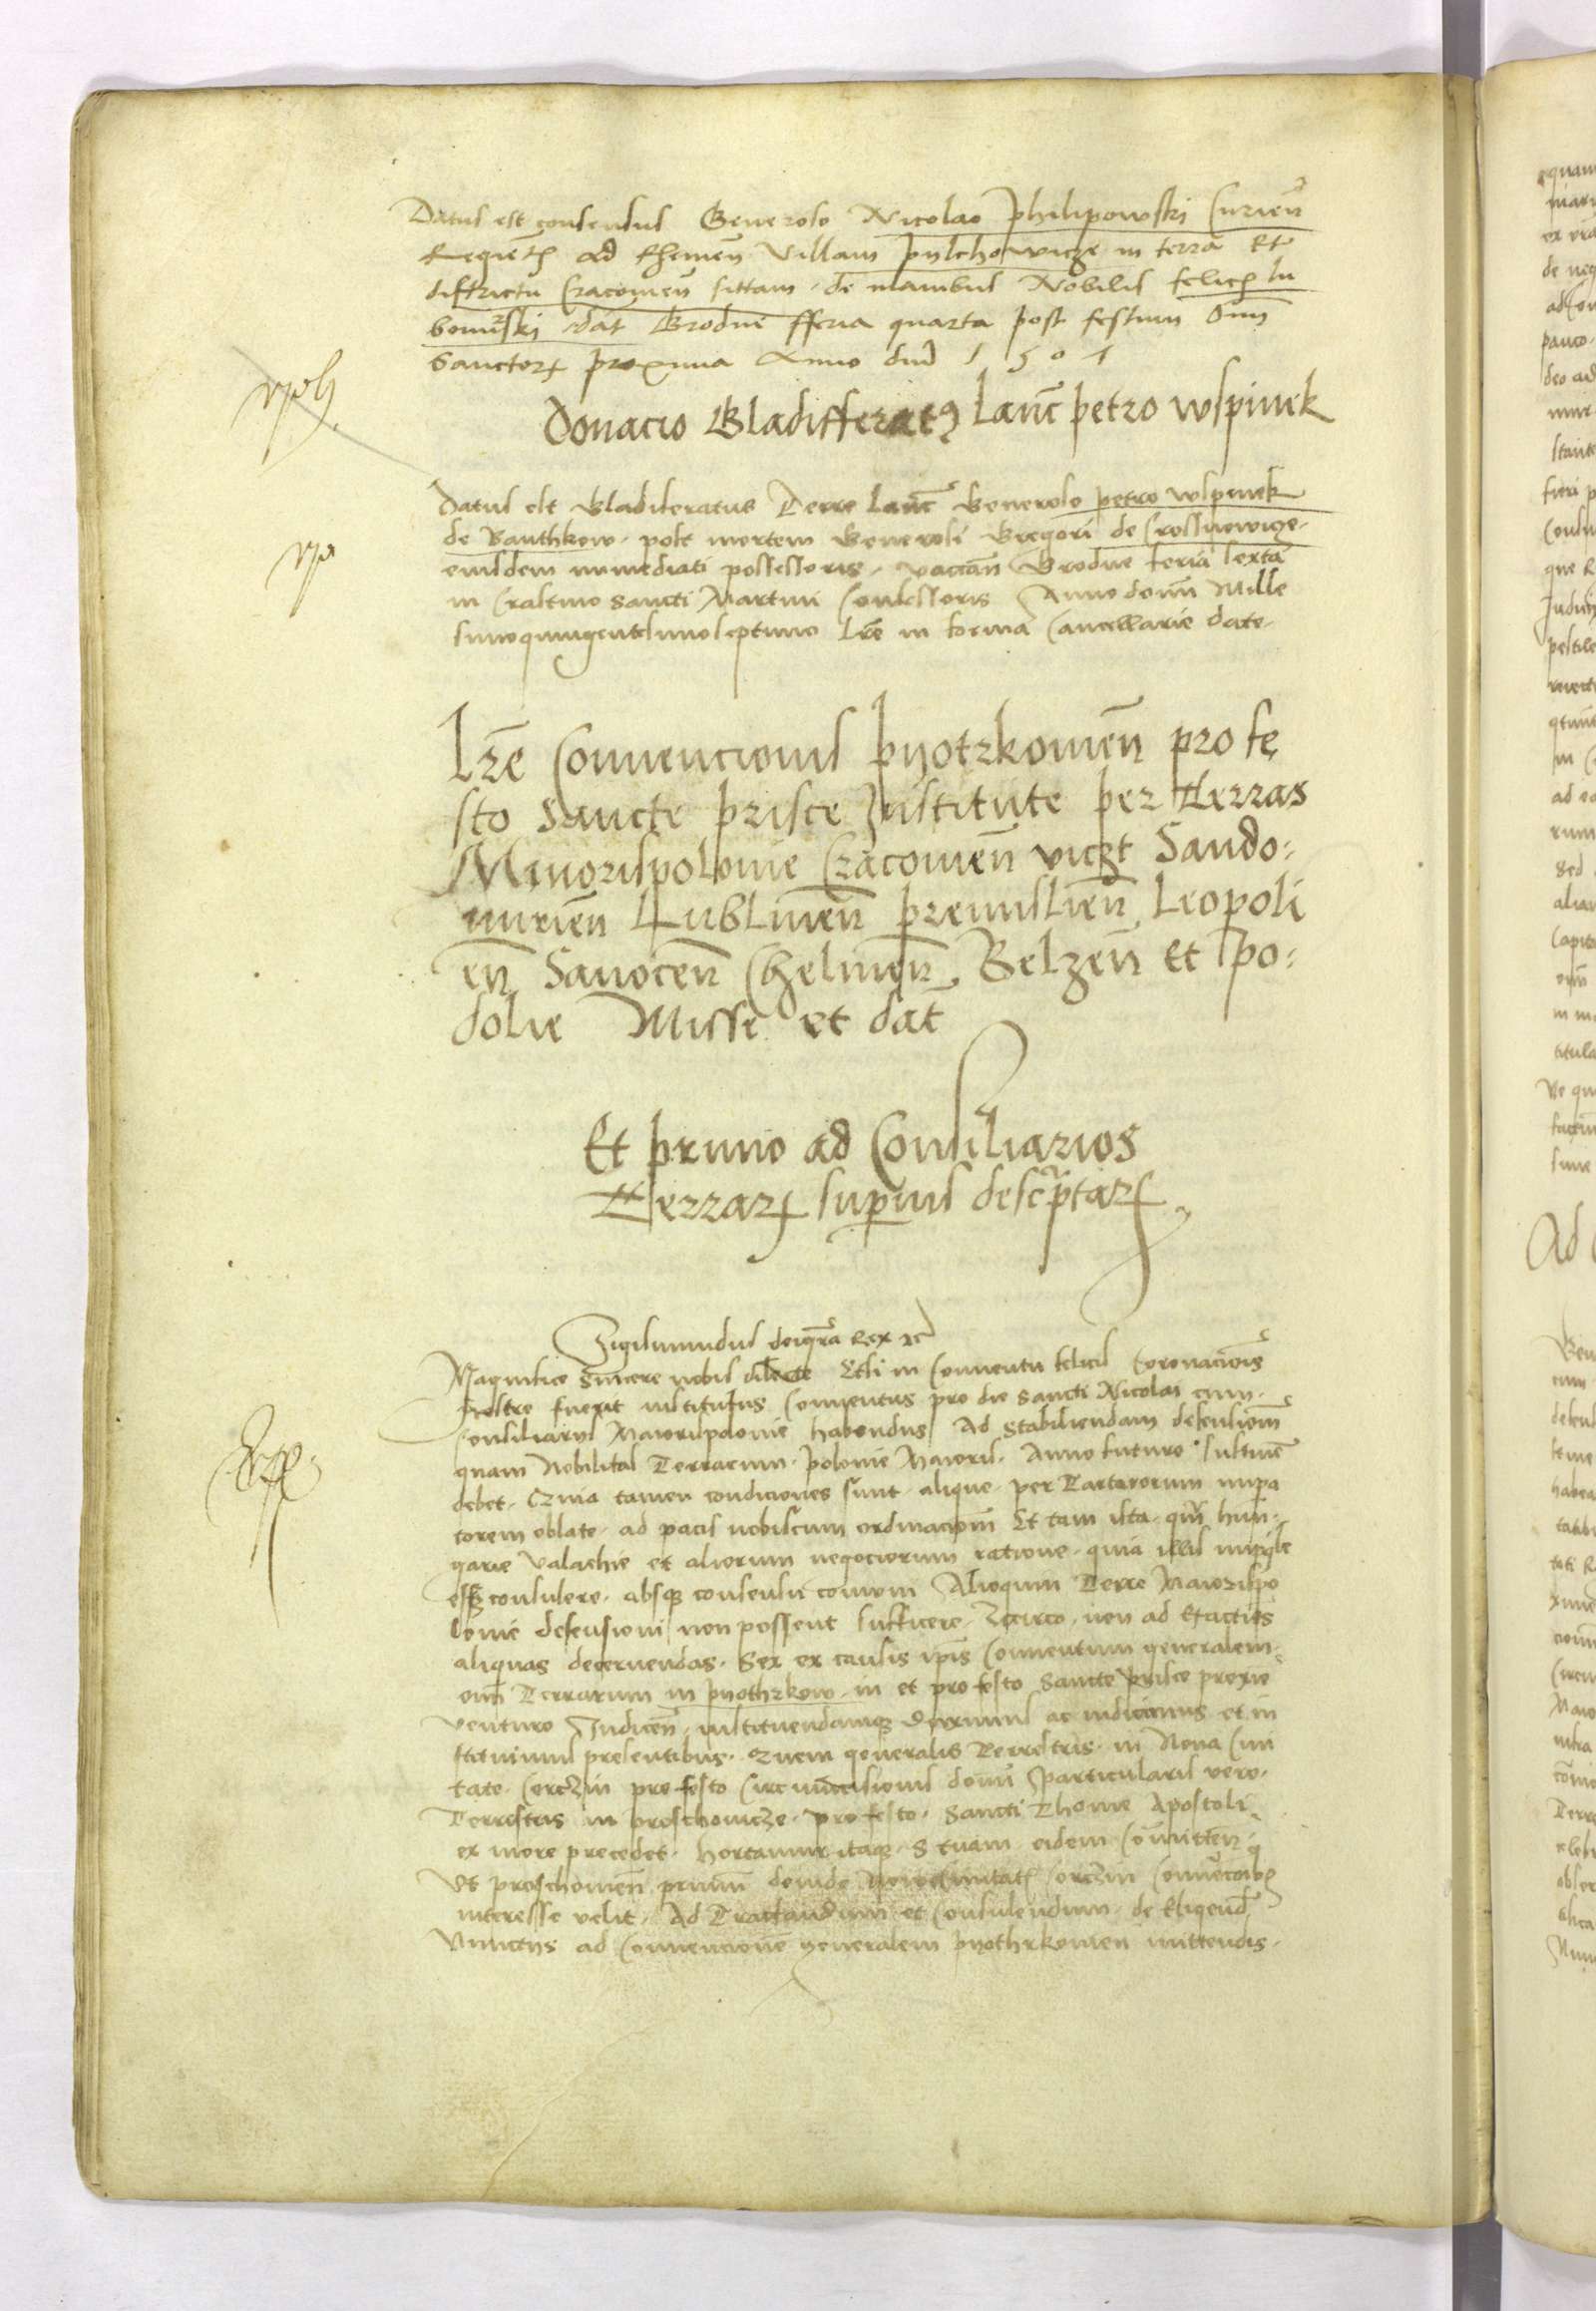 Datus est consensus Generoso Nicolao Philipowski Curien
Regie ad Rhemen Villam pylchowicze in terra Et
districtu Cracovien sittam de manibus Nobilis felicis lu
bomirski dat Grodne fferia quarta post festum Omn
Sanctorum proxima Anno dni 1507
Donacio Gladifferatus Lanc petro wspinek
Datus est Gladiferatus Terre Lanc Generoso petro wspinek
de Banthkow post mortem Generosi Gregori de Crossnowicze
eiusdem immediati possessoris vacan Grodne feria sexta
in Crastino Sancti Martini Confessoris Anno domini Mille
simoquingentesimoseptimo Lre in forma Cancellarie date
Lre Convencionis pyotrkovien pro fe
sto Sancte prisce Institute per terras
Minorispolonie Cracovien viczt Sando
mirien Lublinen premislien Leopoli
en Sanocen Chelmen Belzen et po
dolie Misse et dat
Et primo ad Consiliarios
Terrarum superius descriptarum
Sigismundus dei gra Rex etc
Magnifice Sincere nobis dilecte Etsi in Conventu felicis Coronacionis
nostre fuerit institutus Conventus pro die Sancti Nicolai cum
Consiliariis Maiorispolonie habendus Ad Stabiliendam defensionem
quam Nobilitas Terrarum polonie Maioris Anno futuro sustinere
debet Quia tamen condiciones sunt alique per Tartarorum impa
torem oblate ad pacis nobiscum ordinacionem Et tam ista quam hun
garie Valachie et aliorum negociorum ratione quia illis
esset consulere absque consensu communi Alioquin Terre Maiorispo
lonie defensioni non possent sufficere Idcirco non ad
aliquas decernendas Sex ex causis ipsis Conventum generalem
omn Terrarum in pyothrkow in et pro festo Sancte prisce proxie
venturo Indicen instituendumque duximus ac indicimus et in
stituimus presentibus Quem generalis Terrestris in Nova Civi
tate Corczin pro festo Circumcisionis domini particularis vero
Terrestris in proschovicze pro festo Sancti Thome Apostoli
ex more precedet hortamur itaque S tuam eidem Committen
Ut proschovien primum deinde Nove Civitatis Corczin Convencionibus
interesse velit Ad Tractandum et Consulendum de Eligend
Nunciis ad Convencionem generalem pyothrkovien mittendis